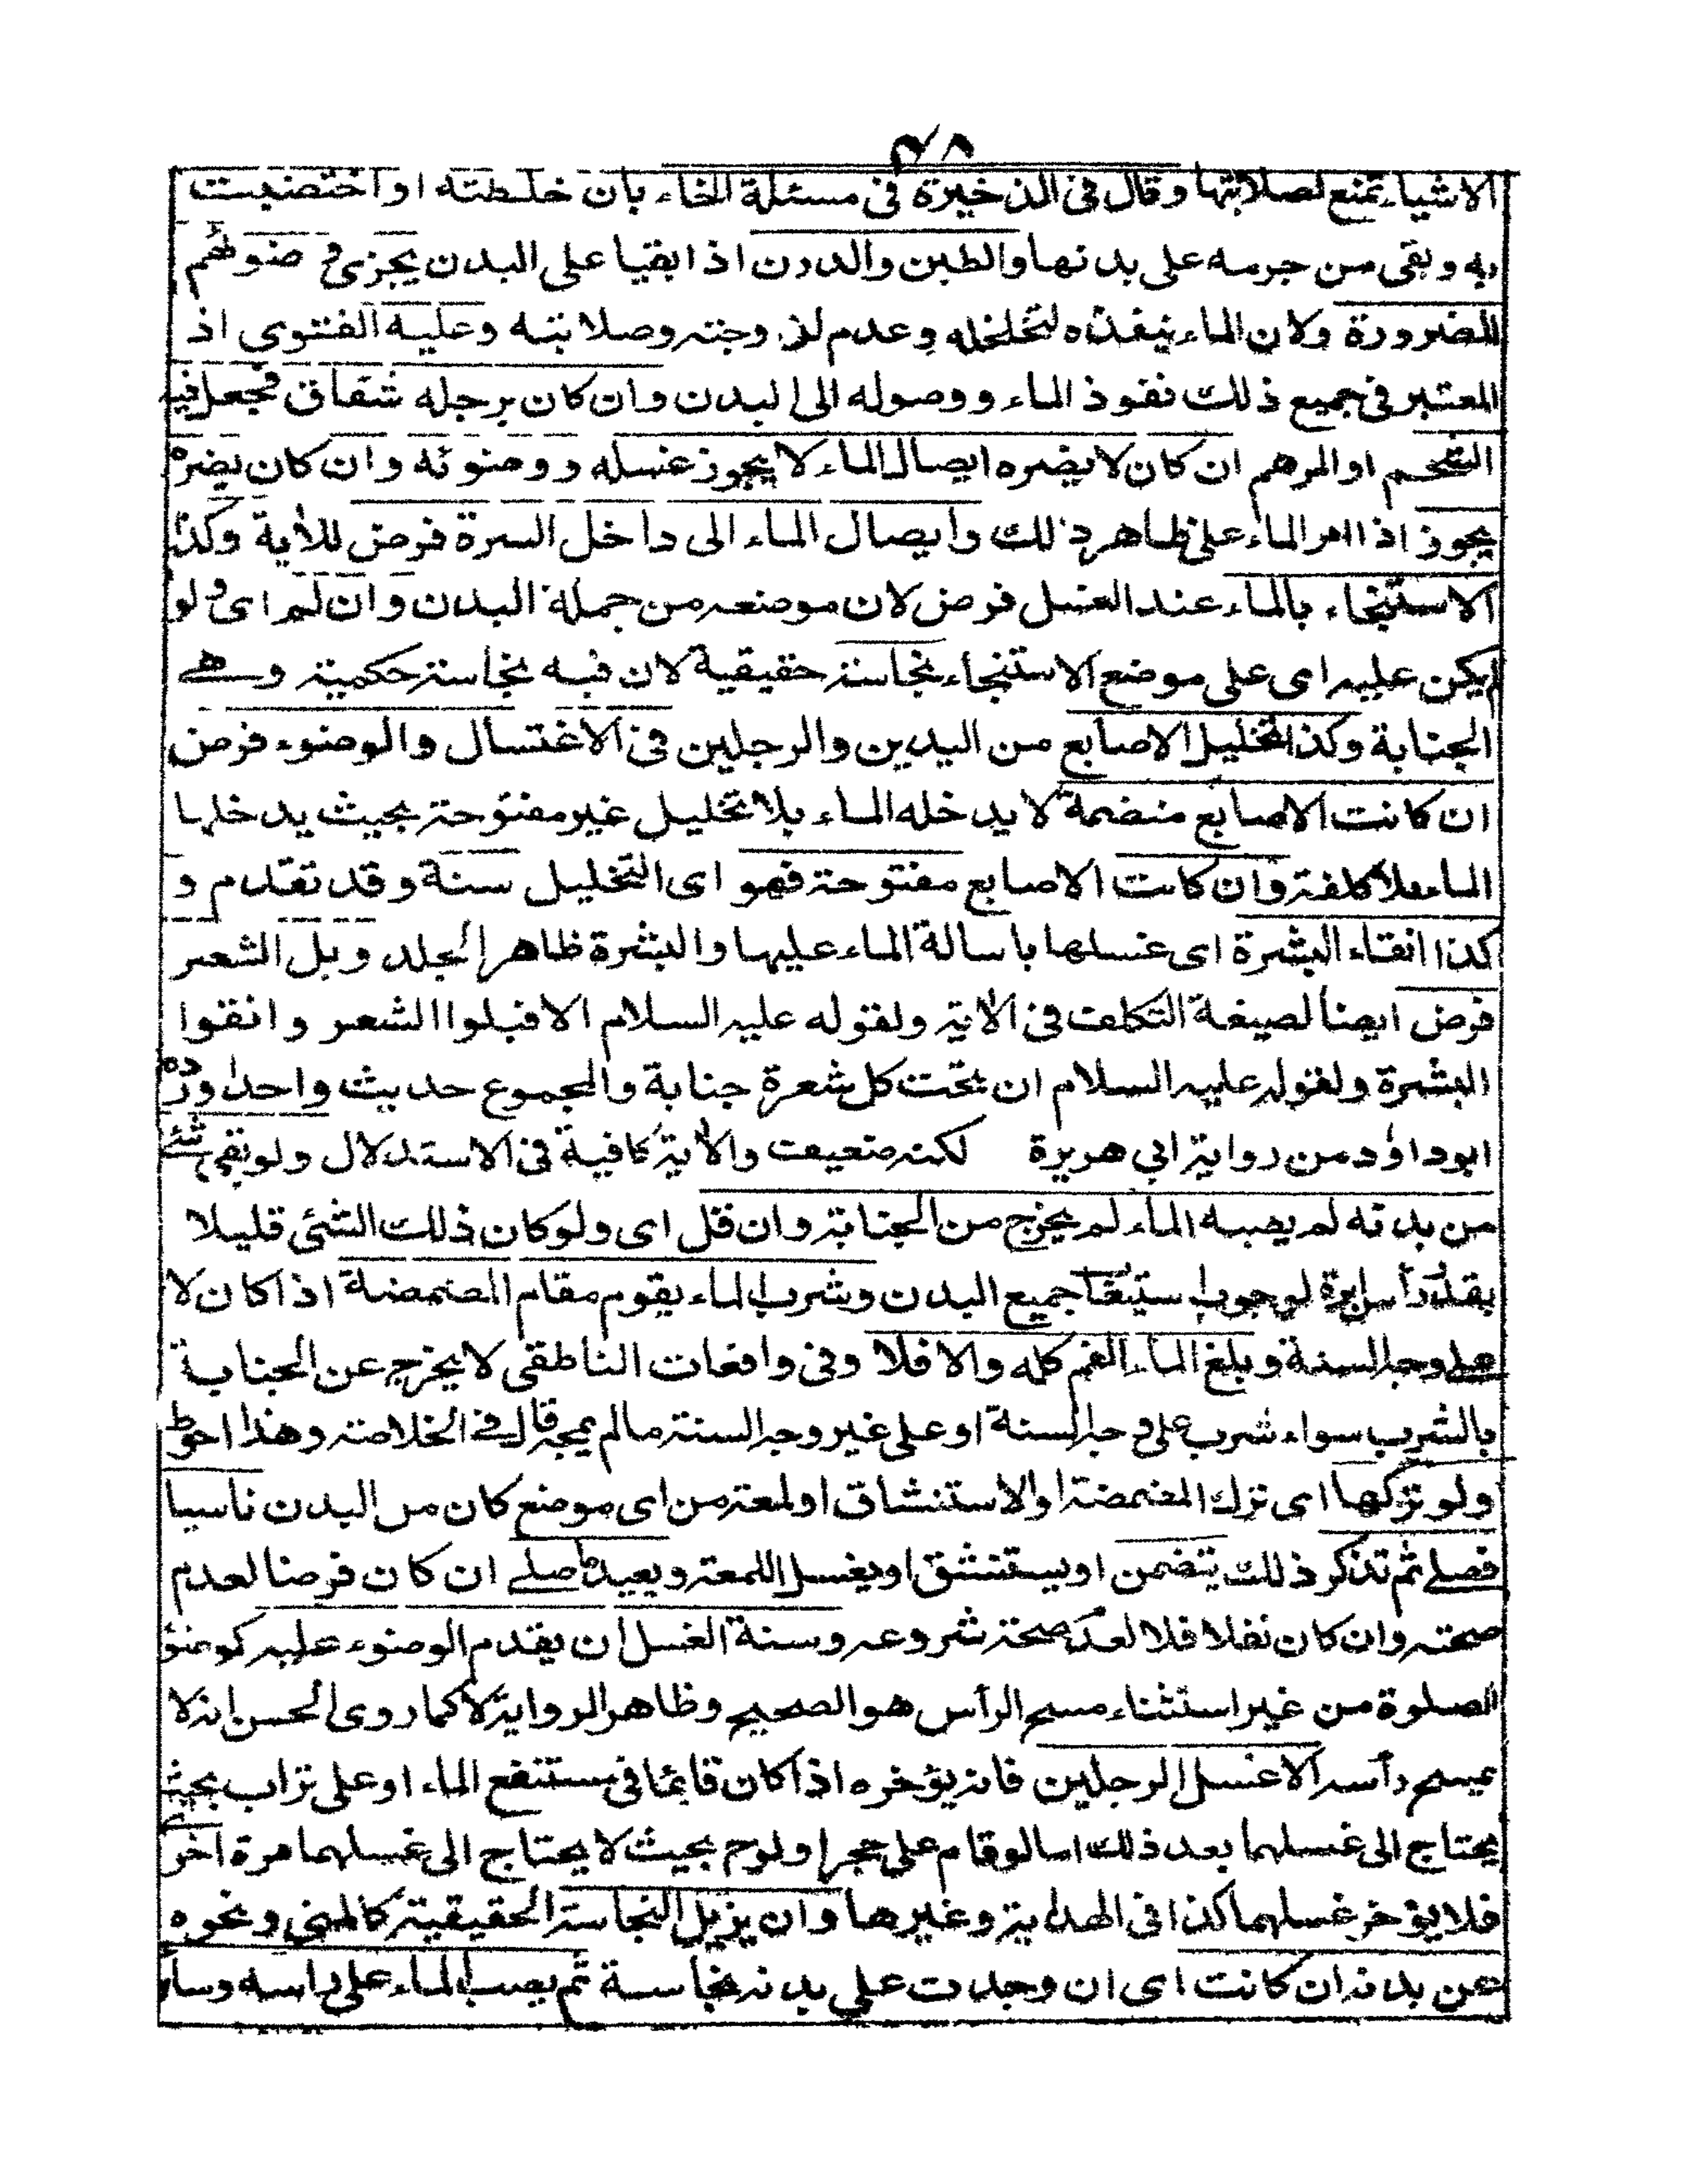 ٤٨
الاشياء تمنع لصلابتها وقال فى الذخيرة فى مسئلة الحناء بان خلطته او اختضبت
به وبقى من جرمه على بدنها والطين والدرن اذا بقيا على البدن يجزئ وضوئهم
للضرورة ولان الماء ينفذه لتخلخله وعدم لزوجته وصلابته وعليه الفتوى اذ
المعتبر فى جميع ذلك نفوذ الماء ووصوله الى البدن وان كان برجله شقاق فجعل فيه
الشحم او المرهم ان كان لا يضره ايصال الماء لا يجوز غسله ووضوئه وان كان يضره
يجوز اذا امر الماء على ظاهر ذلك وايصال الماء الى داخل السرة فرض للاٰية وكذا
الاستنجاء بالماء عند الغسل فرض لان موضعه من جملة البدن وان لم اى ولو
لم يكن عليه اى على موضع الاستنجاء نجاسة حقيقية لان فيه نجاسة حكمية وهى
الجنابة وكذا تخليل الاصابع من اليدين والرجلين فى الاغتسال والوضوء فرض
ان كانت الاصابع منضمة لا يدخله الماء بلا تخليل غير مفتوحة بحيث يدخلها
الماء بلا كلفة وان كانت الاصابع مفتوحة فهو اى التخليل سنة وقد تقدم و
كذا انقاء البشرة اى غسلها باسالة الماء عليها والبشرة ظاهر الجلد وبل الشعر
فرض ايضا لصيغة التكلف فى الاٰية ولقوله عليه السلام الا فبلوا الشعر وانقوا
البشرة ولقوله عليه السلام ان تحت كل شعرة جنابة والمجموع حديث واحد اورده
ابوداؤد من رواية ابي هريرة لكنه ضعيف والاٰية كافية فى الاستدلال ولو بقى شئ
من بدنه لم يصبه الماء لم يخرج من الجنابة وان قل اى ولو كان ذلك الشئ قليلا
بقدر رأس ابرة لوجوب استيعاب جميع البدن وشرب الماء يقوم مقام المضمضة اذا كان لا
على وجه السنة وبلغ الماء الفم كله والا فلا وفى واقعات الناطفى لا يخرج عن الجنابة
بالشرب سواء شرب على وجه السنة او على غير وجه السنة مالم يمجه قال فى الخلاصة وهذا احوط
ولو تركها اى ترك المضمضة او الاستنشاق او لمعة من اى موضع كان من البدن ناسيا
فصلى ثم تذكر ذلك يتضمض او يستنشق او يغسل اللمعة ويعيد ما صلى ان كان فرضا لعدم
صحته وان كان نفلا فلا لعدم صحة شروعه وسنة الغسل ان يقدم الوضوء عليه كوضوء
الصلوة من غير استثناء مسح الرأس هو الصحيح وظاهر الرواية لا كما روى الحسن انه لا
يمسح رأسه الا غسل الرجلين فانه يؤخره اذا كان قائما فى مستنقع الماء او على تراب بحيث
يحتاج الى غسلهما بعد ذلك اما لو قام على حجر او لوح بحيث لا يحتاج الى غسلهما مرة اخرى
فلا يؤخر غسلهما كذا فى الهداية وغيرها وان يزيل النجاسة الحقيقية كالمنى ونحوه
عن بدنه ان كانت اى ان وجدت على بدنه نجاسة ثم يصب الماء على راسه وسائر